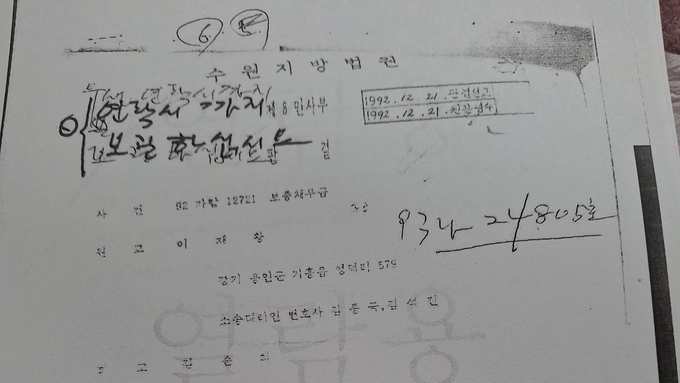 6
수원지방법원
1992. 12. 21. 판결선고
1992. 12. 21. 원본영수
연락시 각가지
제8민사부
보관
판결
사건 92 가합 12721 보증채무금
93나 24805호
원고 이재황
경기 용인군 기흥읍 영덕리 579
소송대리인 변호사 김종국, 김석진
피고
열람용